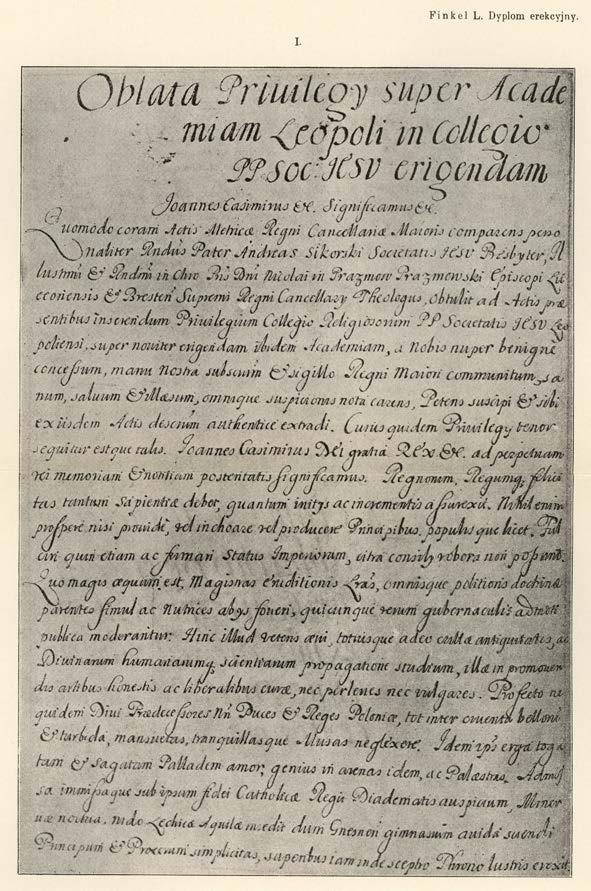 Finkel L. Dyplom erekcyjny.
I.
Oblata Priuilegy super Acade
miam Leopoli in Collegio
PP. SOC: IESV erigendam
Joannes Casimirus &c. Significamus &c.
Quomodo coram Actis Metricæ Regni Cancellariæ Maioris comparens perso
naliter Rndus Pater Andreas Sikorski Societatis IESV Presbyter, Il
lustrmi & Rndmi in Chro Pris Dni Nicolai in Prazmow Prazmowski Episcopi Lu
ceoriensis & Bresten Supremi Regni Cancellary Theologus, obtulit ad Actis præ
sentibus inserendum Priuilegium Collegio Religiosorum PP Societatis IESV Leo
poliensi, super nouiter erigendam ibidem Academiam, a Nobis nuper benigne
concessum, manu nostra subscrim & sigillo Regni Maiori communitum, sa
num, saluum & illæsum, omnique suspicionis nota carens, Petens suscipi & sibi
ex iisdem Actis descrim authentice extradi. Cuius quidem Priuilegy tenor
sequitur estque talis. Joannes Casimirus Dei gratia REX &c. ad perpetuam
rei memoriam & notitiam posteritatis significamus. Regnorum, Regumq, felici
tas tantum sapientiæ debet, quantum initys ac incrementis assurexit. Nihil enim
prospere nisi prouide, vel inchoare vel producere Principibus, populisque licet. Ful
ciri quin etiam ac firmari Status Imperiorum, citra consily robora non possunt.
Quo magis æquum est, Magistras eruditionis Lras, omnisque politioris doctrinæ
parentes simul ac Nutrices abys foueri, quicunque rerum gubernaculis admoti
publica moderantur. Hinc illud veteris æui, totiusque adeo cultæ antiquitatis, ac
Diuinarum humanarumq scientiarum propagatione studium, illæ in promouen
dis artibus honestis ac liberalibus curæ, nec perlenes nec vulgares. Profecto ne
quidem Diui Prædecessores Nri Duces & Reges Poloniæ, tot inter cruenta bellorum
& turbida, mansuetas, tranquillasque Musas neglexere. Idem ips erga toga
tam & sagatam Palladem amor, genius in arenas idem, ac Palæstras. Admis
sa immissaque sub ipsum fidei Catholicæ Regii Diadematis auspicium, Miner
uæ noctua, nido Lechicæ Aquilæ insedit dum Gnesnen gimnasium auida suendi
Principum & Procerum simplicitas, superibus iam inde sceptro Throno lustris erexit